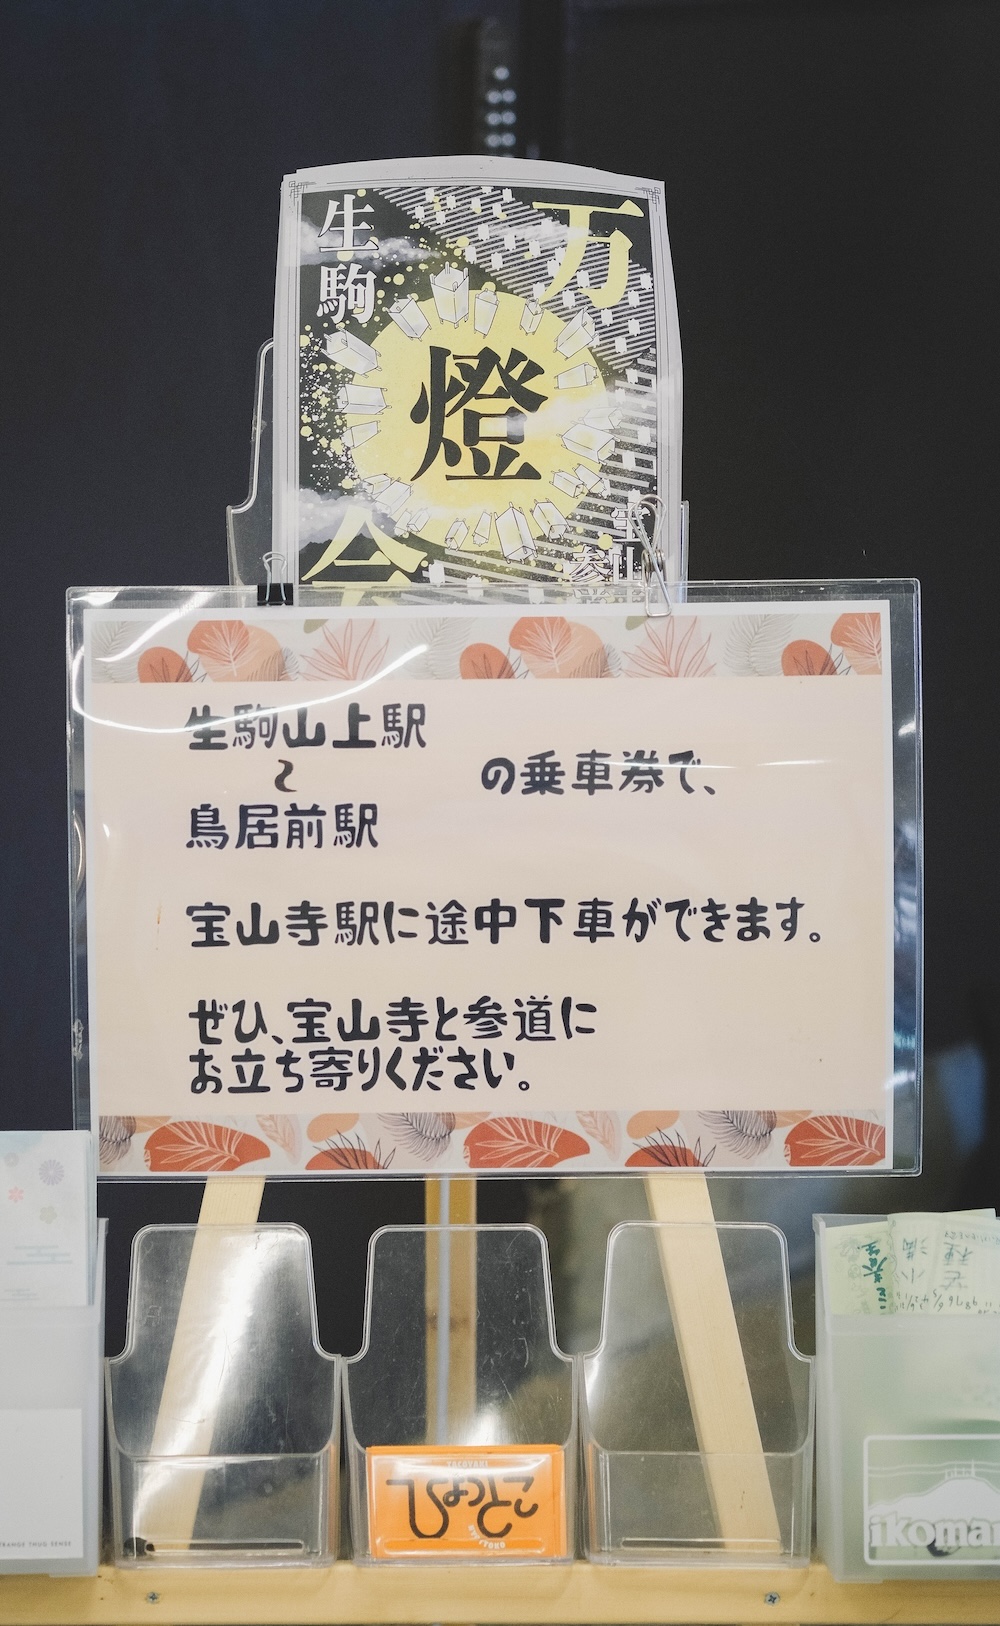 生駒
万
燈
会
宝山
参
生駒山上駅
〜
鳥居前駅
の乗車券で、
宝山寺駅に途中下車ができます。
ぜひ、宝山寺と参道に
お立ち寄りください。
TAKOYAKI
ひょっとこ
HYOTTOKO
STRANGE THUG SENSE
ikoma